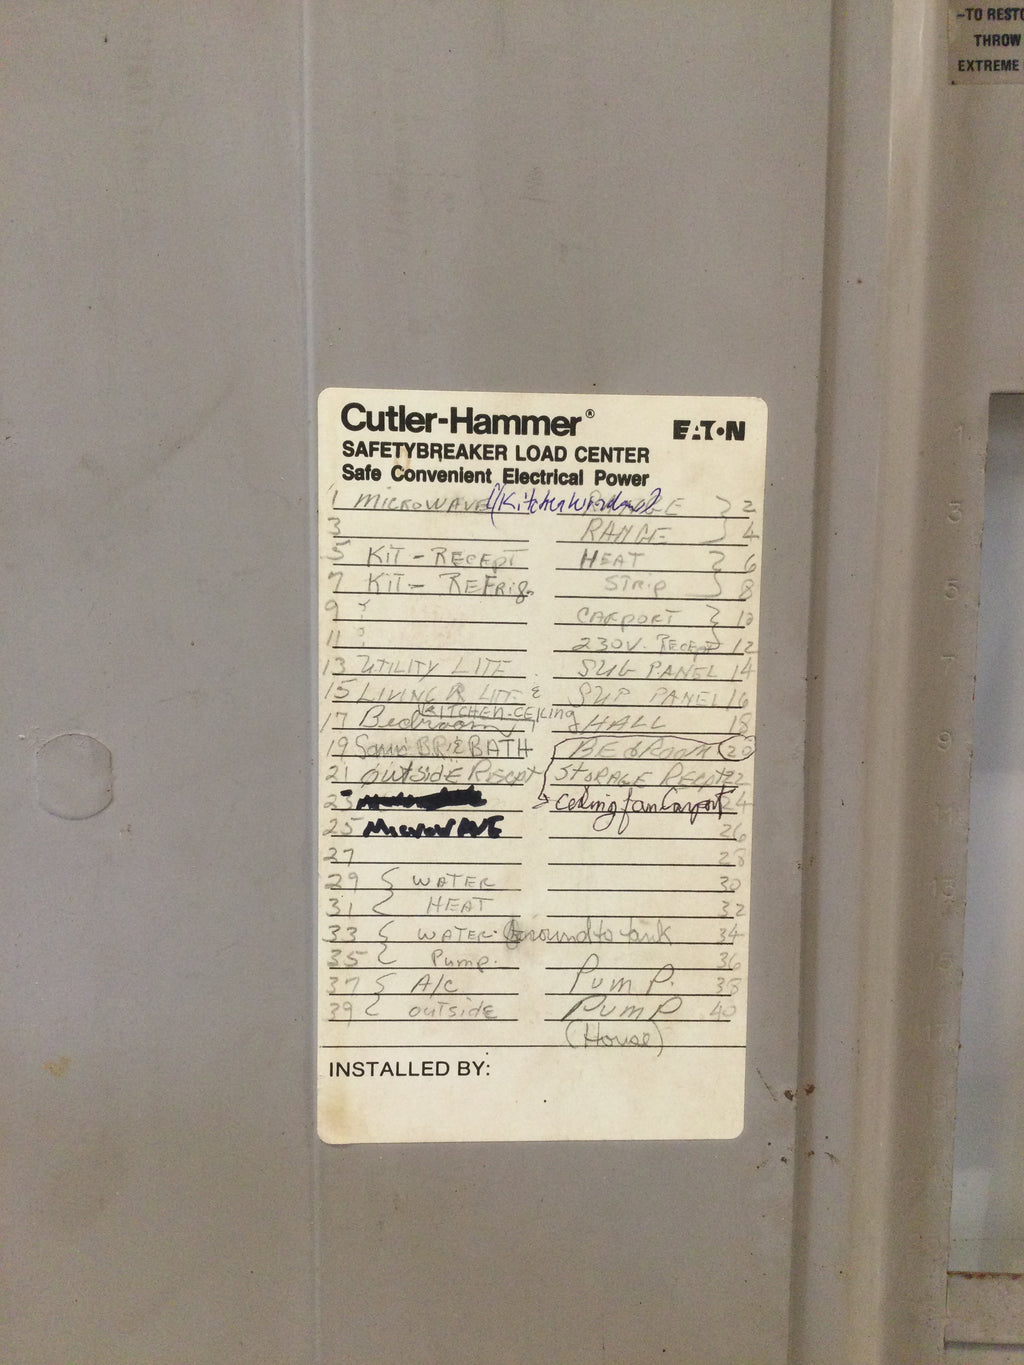 -TO RESTO
THROW
EXTREME
Cutler-Hammer®
EAT•N
SAFETYBREAKER LOAD CENTER
Safe Convenient Electrical Power
1 MICROWAVE (Kitchen Window) RANGE 2
3 RANGE 4
5 KIT - RECEPT HEAT 6
7 KIT - REFRIG. STRIP 8
9 CARPORT 10
11 230V. RECEPT 12
13 UTILITY LITE SUB PANEL 14
15 LIVING R LITE & SUB PANEL 16
KITCHEN-CEILING
17 Bedroom HALL 18
19 BR & BATH BEDROOM 20
21 OUTSIDE RECEPT STORAGE RECPT 22
23 Ceiling fan Carport 24
25 MICROWAVE 26
27 28
29 WATER 30
31 HEAT 32
33 WATER Ground to tank 34
35 PUMP. 36
37 A/C PUMP. 38
39 OUTSIDE PUMP 40
(House)
INSTALLED BY: